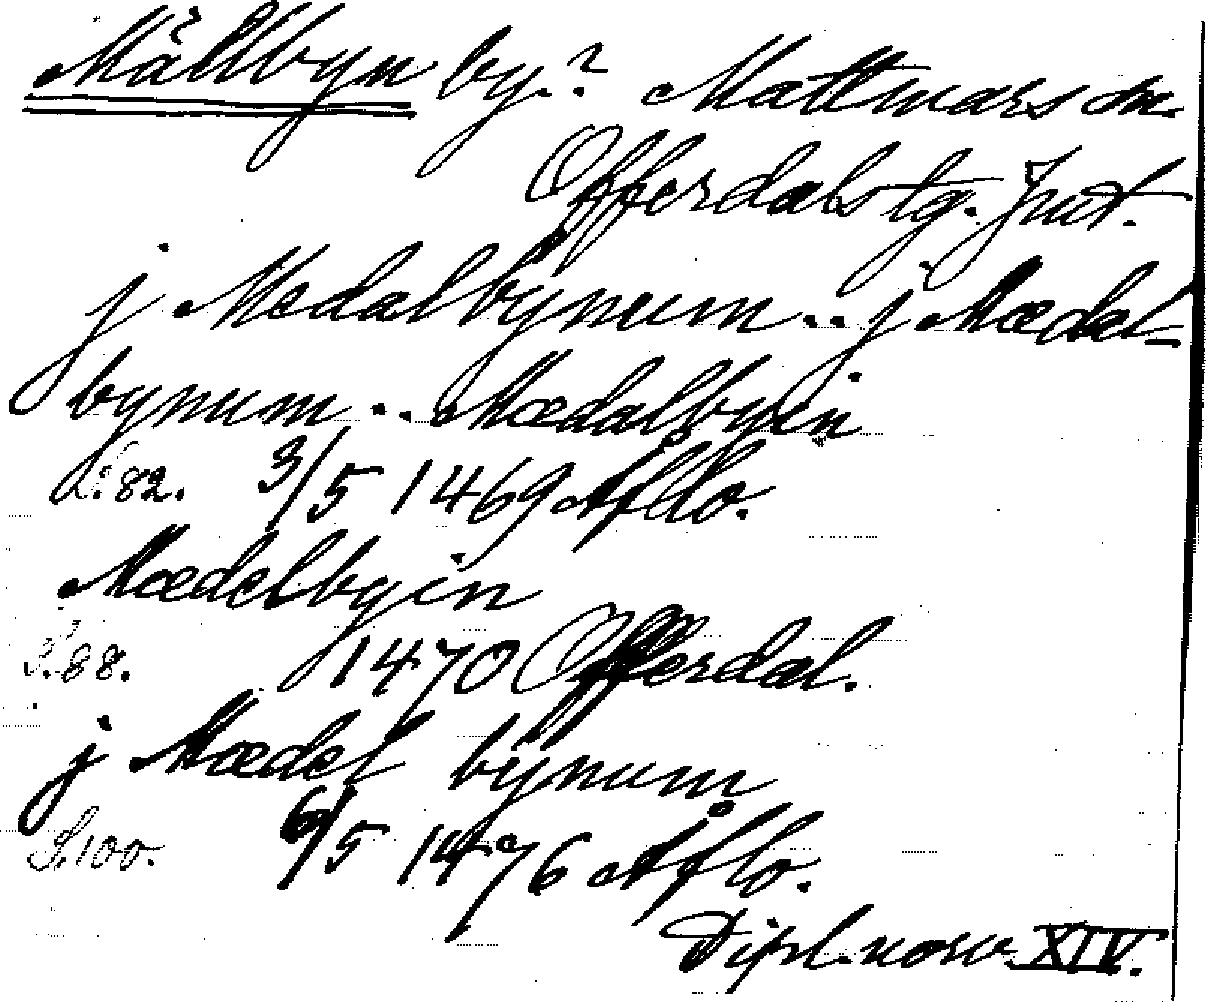 Mällbyn by.? Mattmars sn
Offerdals tg. Jmt.
j Medalbynum .. j Mædel-
bynum .. Mædalbyin
S. 82. 3/5 1469 Aflo.
Mædelbyin
S. 88. 1470 Offerdal.
j Mædel bynum
S. 100. 6/5 1476 Åflo.
Dipl. norv. XIV.